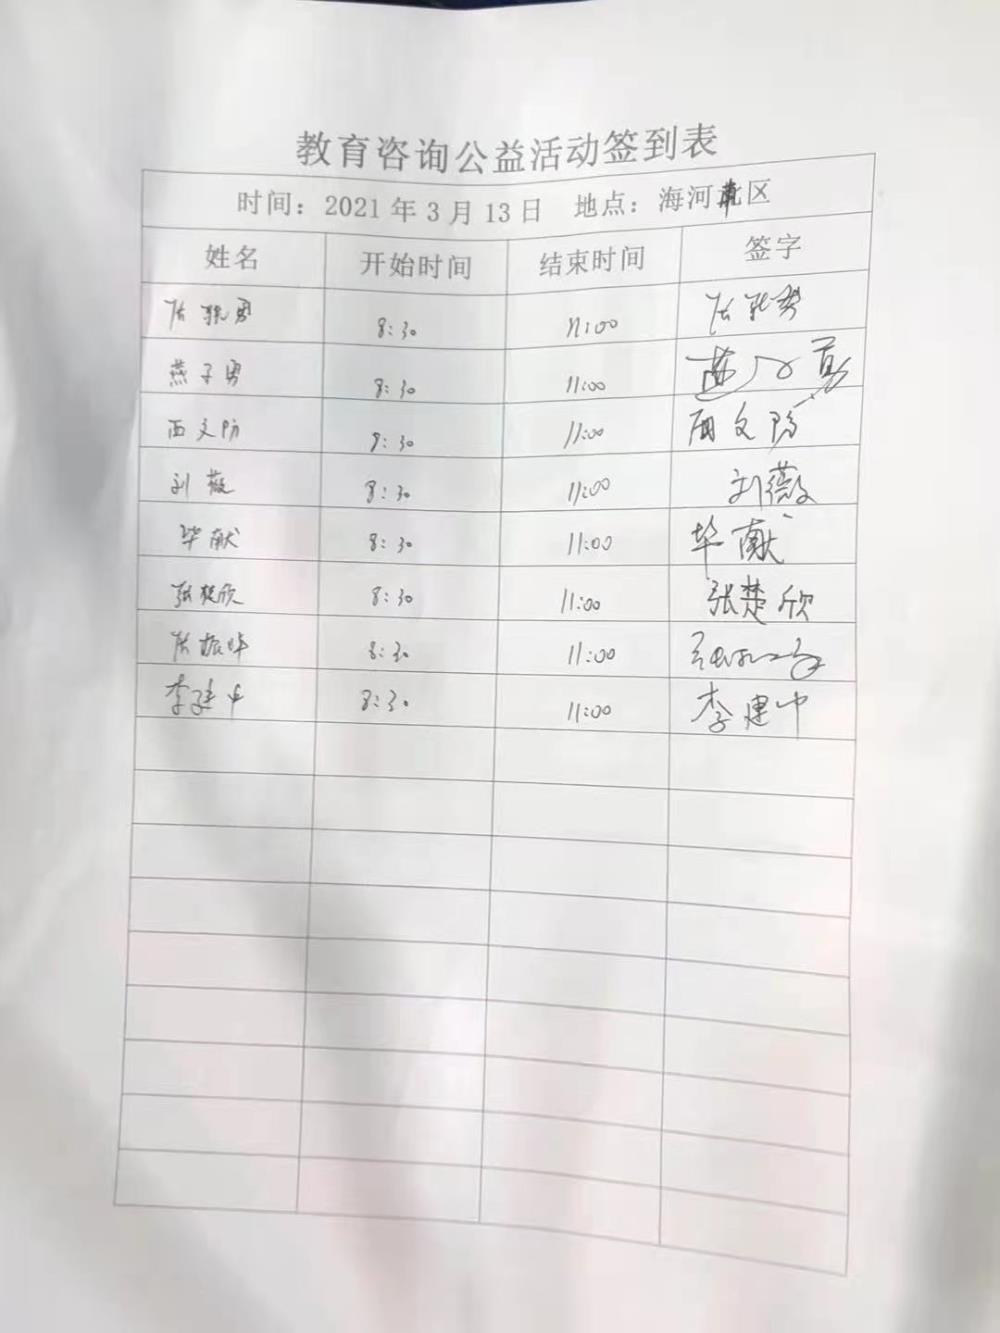 教育咨询公益活动签到表
时间：2021年3月13日 地点：海河南区
姓名 开始时间 结束时间 签字
8:30 11:00
燕子勇 8:30 11:00 燕子勇
西文防 8:30 11:00 西文防
刘薇 8:30 11:00 刘薇
毕献 8:30 11:00 毕献
张楚欣 8:30 11:00 张楚欣
张振华 8:30 11:00
李建中 8:30 11:00 李建中